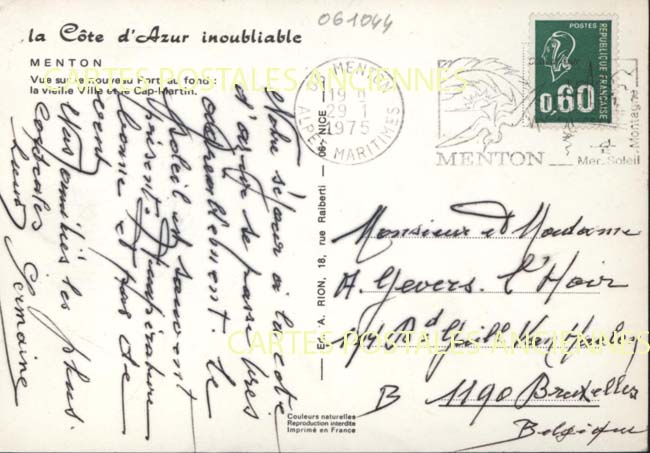 061044
la Côte d'Azur inoubliable
MENTON
Vue sur le nouveau Port au fond :
la vieille Ville et le Cap-Martin.
CARTES POSTALES ANCIENNES
MENTON
29 - 1
1975
ALPES MARITIMES
POSTES
REPUBLIQUE FRANCAISE
0,60
MENTON
Mer Soleil
Montagne
Notre séjour à la côte
d'azur se passe très
agréablement le
Soleil est souvent
présent. Température
bonne et pas de
vent
Mes amitiés les plus
Cordiales
Germaine
Ed. A. RION, 18, rue Raiberti - 06 - NICE
Monsieur et Madame
A. Gevers. l'Hoir
Bd
B 1190 Bruxelles
Belgique
CARTES POSTALES ANCIENNES
Couleurs naturelles
Reproduction interdite
Imprimé en France